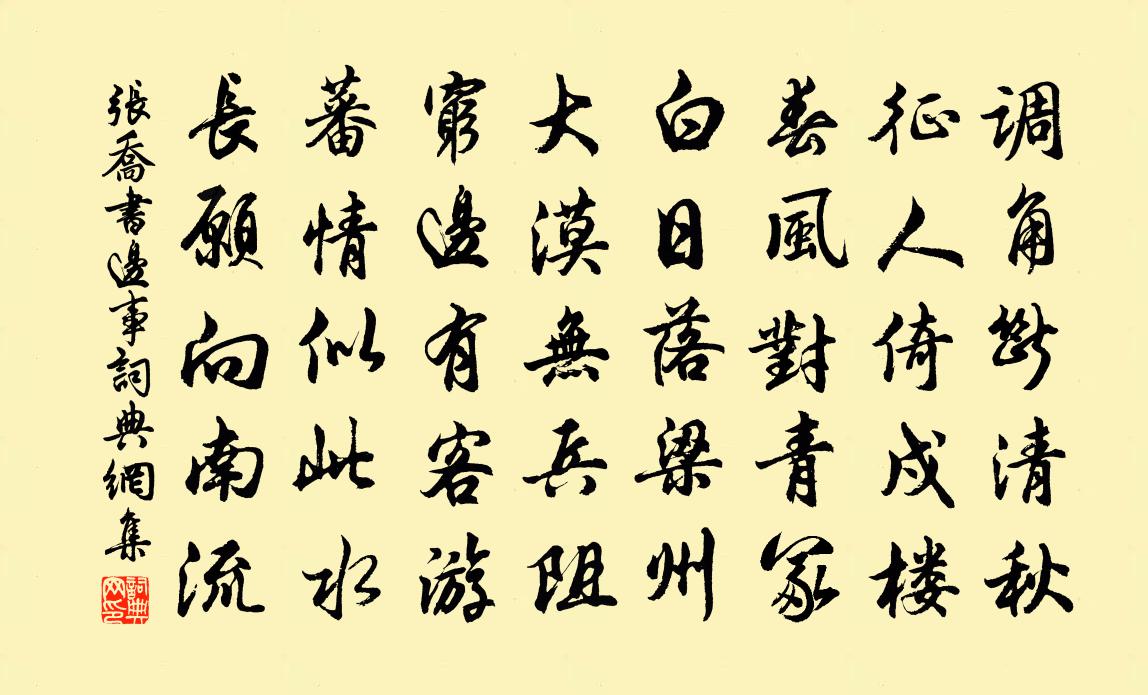 调角断清秋
征人倚戍楼
春風對青冢
白日落梁州
大漠無兵阻
窮邊有客游
蕃情似此水
長願向南流
張喬書邊事詞典網集
詞典网印